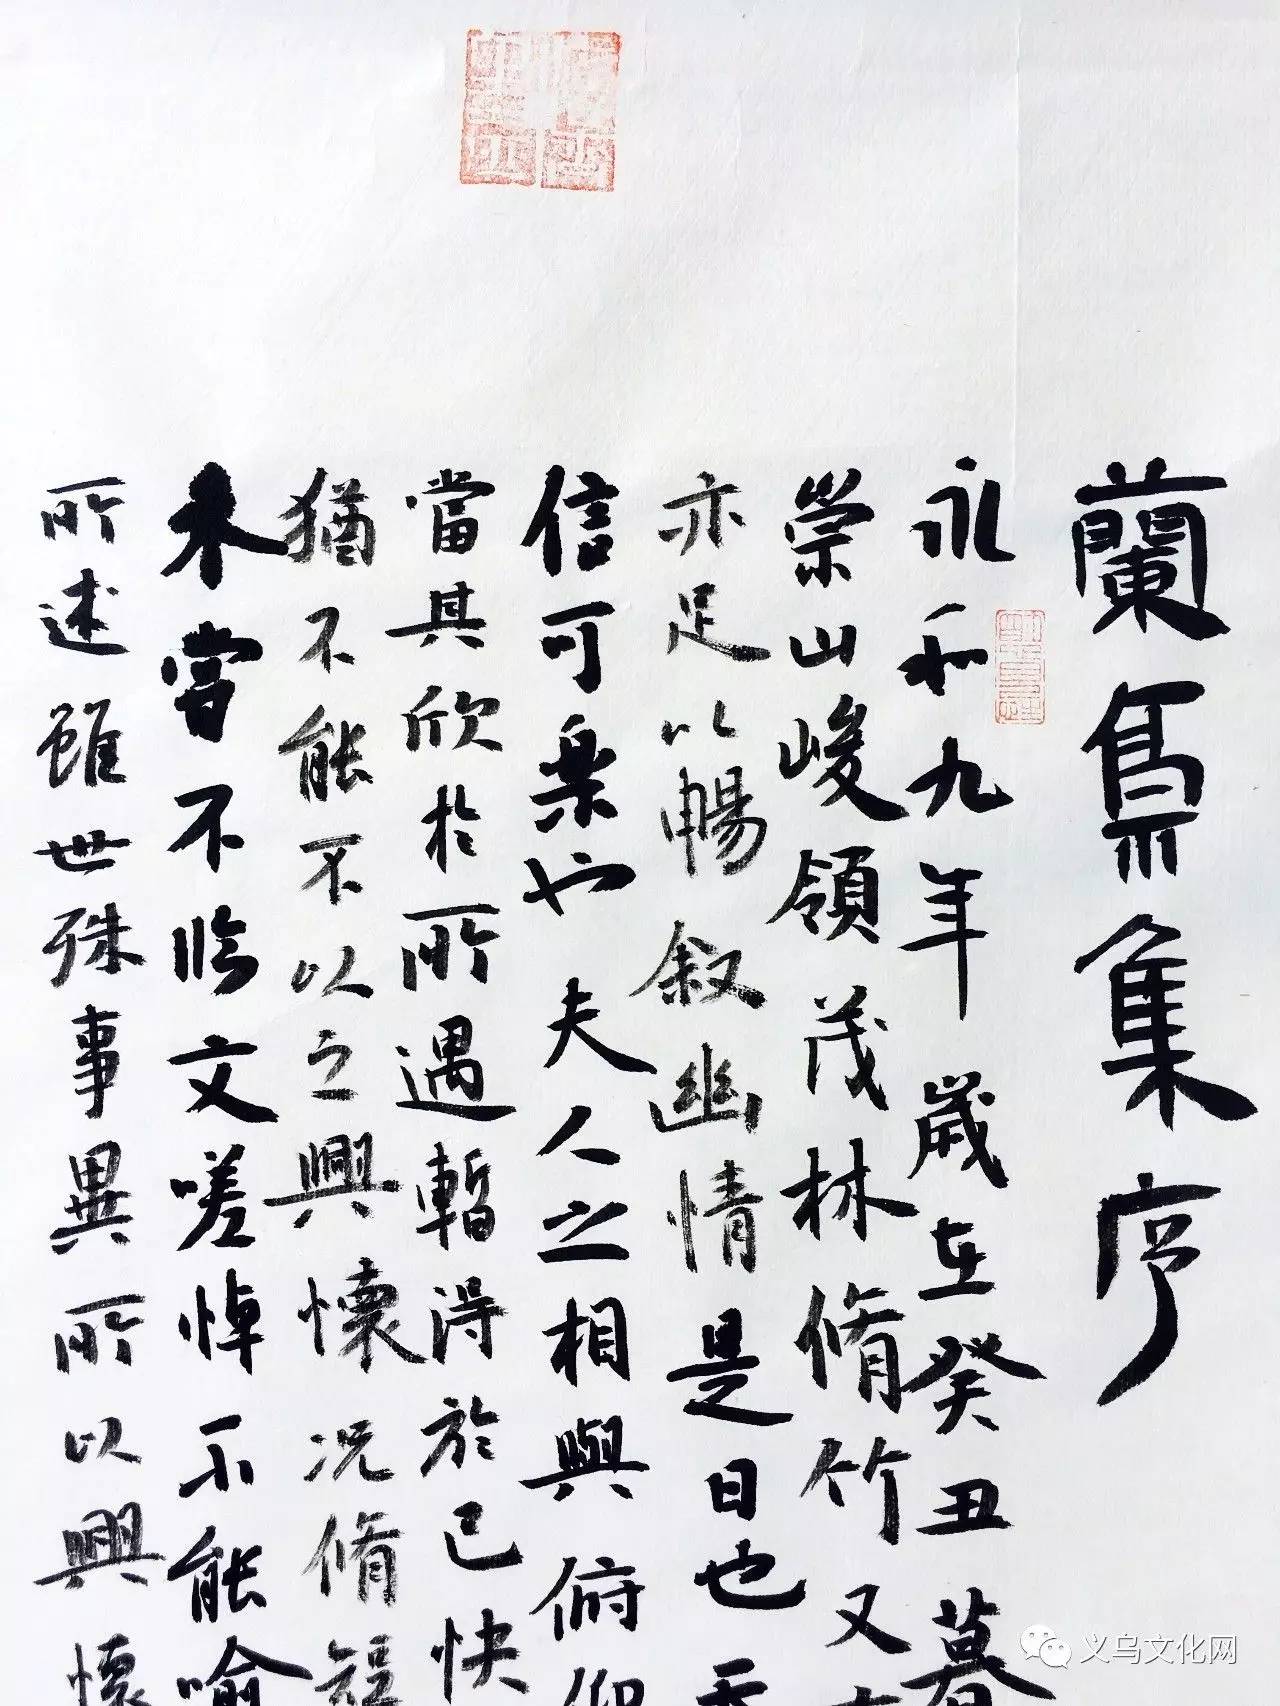 蘭亭集序
永和九年歲在癸丑暮
崇山峻領茂林脩竹又
亦足以暢敘幽情是日也天
信可樂也夫人之相與俯仰
當其欣於所遇暫得於己快
猶不能不以之興懷況脩短
未嘗不臨文嗟悼不能喻
所述雖世殊事異所以興懷
义乌文化网